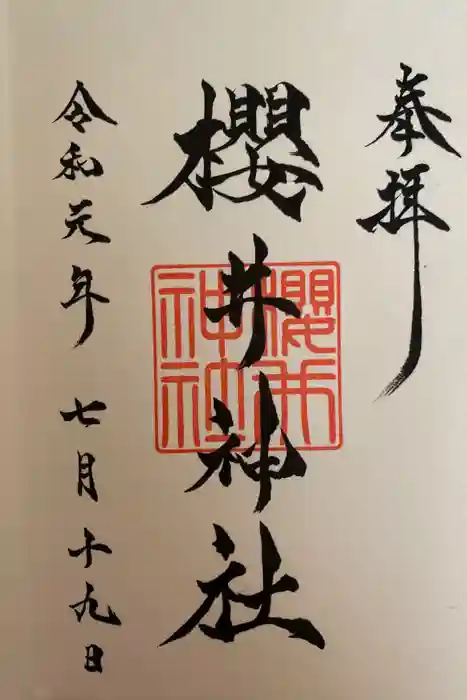 奉拝
櫻井神社
櫻井神社
令和元年 七月十九日